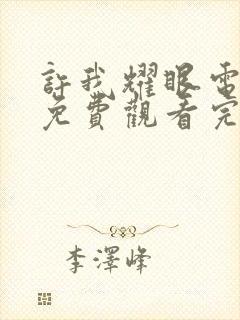 許我耀眼電
免費觀看完
李澤峰